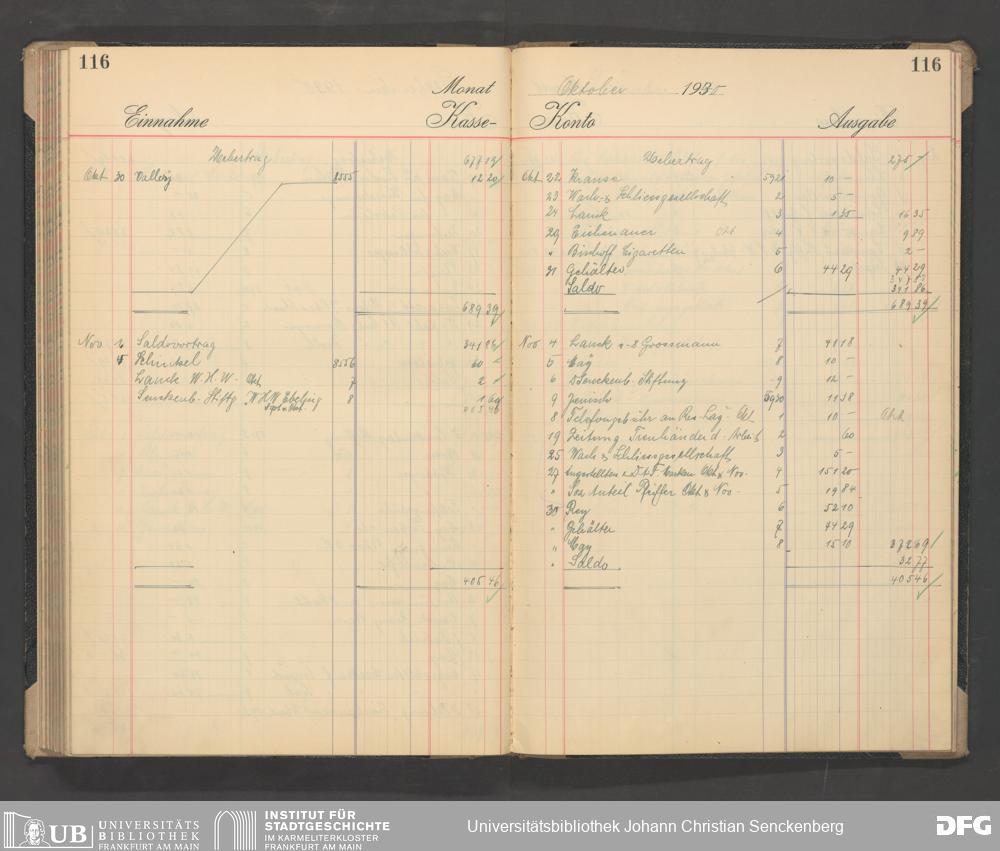 116
Monat
Einnahme Kasse-
Uebertrag 677 19
Okt 30 8555 12 20
689 39
Nov Saldovortrag 341 86
Schinkel 8556 60 -
Lanck W.H.W. Okt. 7 2 -
Senckenb. Stiftg. W.H.W. 8 1 60
405 46
405 46
116
Oktober 1935
Konto Ausgabe
Uebertrag 275 -
Okt 22 Krause 5921 10 -
23 Wach- & Schliessgesellschaft 2 5 -
24 Lanck 3 1 35 16 35
29 Eichenauer Okt 4 9 89
" Bischoff Cigaretten 5 2 -
31 Gehälter 6 44 29 44 29
Saldo 341 86
689 39
Nov 4 Lanck & Grossmann 7 41 18
5 May 8 10 -
6 Senckenb. Stiftung 9 12 -
9 Jenisch 5930 11 38
8 Telefongebühr an Okt 1 10 -
19 Zeitung Treuhänder d. Arbeit 2 60
25 Wach & Schliessgesellschaft 3 5 -
27 Angestellten & D.A.F. Marken Okt & Nov. 4 151 20
" Anteil Pfeiffer Okt & Nov - 5 19 84
30 Rey 6 52 10
" Gehälter 7 44 29
" May 8 15 10 372 69
" Saldo 32 77
405 46
UB UNIVERSITÄTS
BIBLIOTHEK
FRANKFURT AM MAIN
INSTITUT FÜR
STADTGESCHICHTE
IM KARMELITERKLOSTER
FRANKFURT AM MAIN
Universitätsbibliothek Johann Christian Senckenberg
DFG